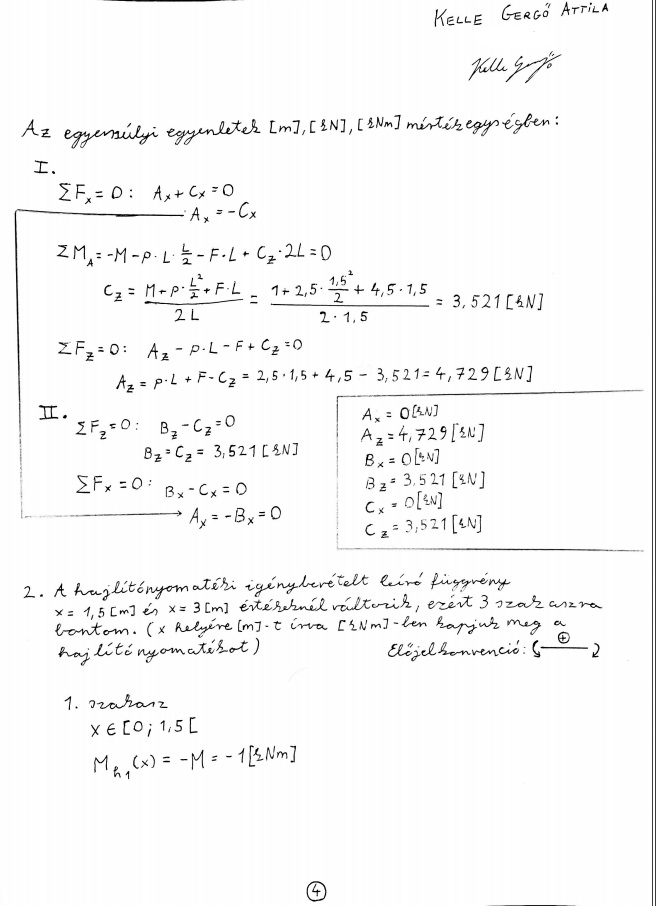 KELLE GERGŐ ATTILA
Kelle Gergő
Az egyensúlyi egyenletek [m], [kN], [kNm] mértékegységben:
I.
ΣFx = 0: Ax + Cx = 0
Ax = -Cx
ΣM_A = -M - p·L·L/2 - F·L + Cz·2L = 0
Cz = (M + p·L²/2 + F·L)/(2L) = (1 + 2,5·1,5²/2 + 4,5·1,5)/(2·1,5) = 3,521 [kN]
ΣFz = 0: Az - p·L - F + Cz = 0
Az = p·L + F - Cz = 2,5·1,5 + 4,5 - 3,521 = 4,729 [kN]
II.
ΣFz = 0: Bz - Cz = 0
Bz = Cz = 3,521 [kN]
ΣFx = 0: Bx - Cx = 0
Ax = -Bx = 0
Ax = 0 [kN]
Az = 4,729 [kN]
Bx = 0 [kN]
Bz = 3,521 [kN]
Cx = 0 [kN]
Cz = 3,521 [kN]
2. A hajlítónyomatéki igénybevételt leíró függvény
x = 1,5 [m] és x = 3 [m] értékeknél változik, ezért 3 szakaszra
bontom. (x helyére [m]-t írva [kNm]-ben kapjuk meg a
hajlítónyomatékot) Előjelkonvenció: ⊕
1. szakasz
x ∈ [0; 1,5[
M_h1(x) = -M = -1 [kNm]
4